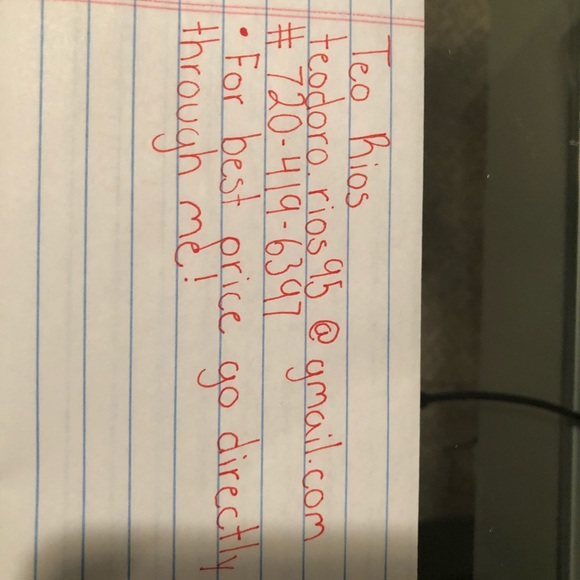 Teo Rios
teodoro.rios95@gmail.com
# 720-419-6397
• For best price go directly
through me!